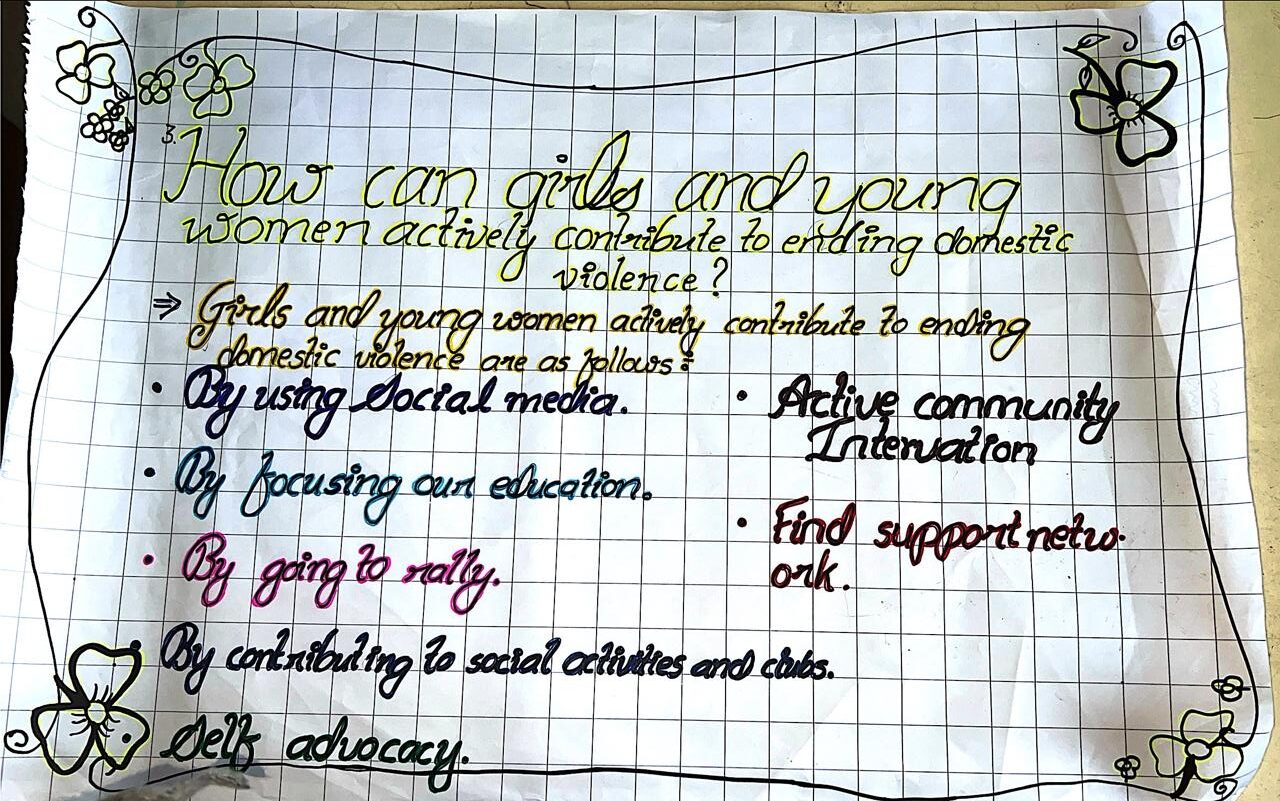 3.
How can girls and young
women actively contribute to ending domestic
violence?
⇒ Girls and young women actively contribute to ending
domestic violence are as follows:
• By using Social media.
• By focusing our education.
• By going to rally.
• By contributing to social activities and clubs.
• Self advocacy.
• Active community
Intervation
• Find support netw-
ork.